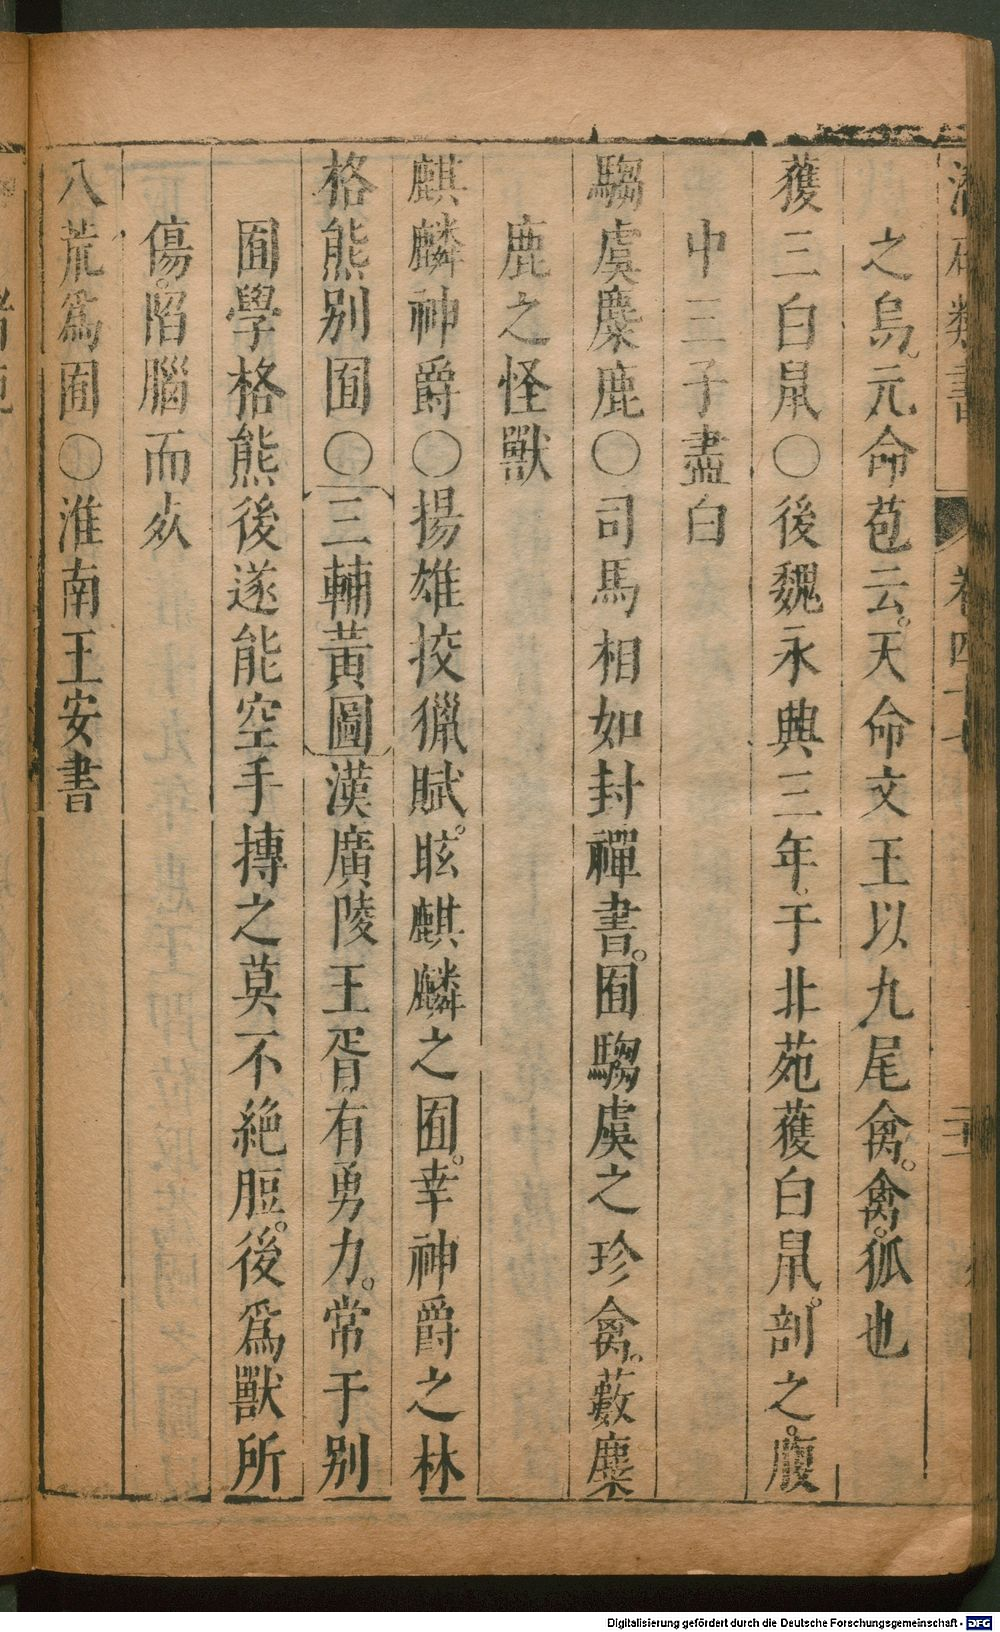 潛確類書 卷四十七
之烏元命苞云。天命文王以九尾禽。禽。狐也
獲三白鼠〇後魏永興三年于北苑獲白鼠。剖之。腹
中三子盡白
騶虞麋鹿〇司馬相如封禪書。囿騶虞之珍禽。藪麋
鹿之怪獸
麒麟神爵〇揚雄挍獵賦。眩麒麟之囿。幸神爵之林
格熊別囿〇三輔黃圖漢廣陵王胥有勇力。常于別
囿學格熊後遂能空手搏之莫不絶脰。後爲獸所
傷。陷腦而灰
八荒爲囿〇淮南王安書
Digitalisierung gefördert durch die Deutsche Forschungsgemeinschaft - DFG